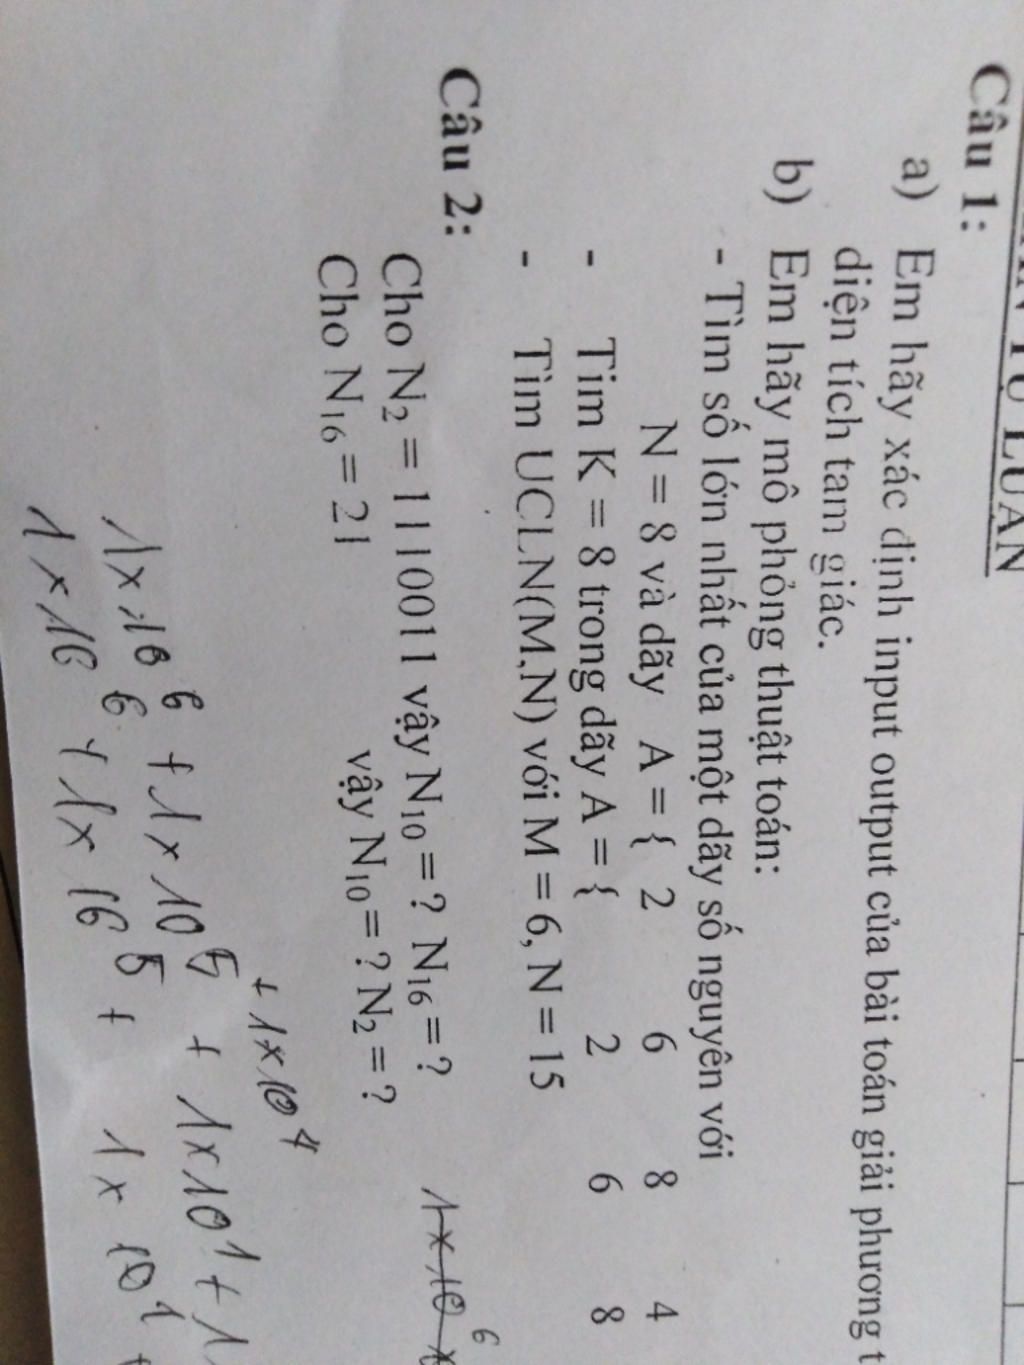 TỰ LUẬN
Câu 1:
a) Em hãy xác định input output của bài toán giải phương
diện tích tam giác.
b) Em hãy mô phỏng thuật toán:
- Tìm số lớn nhất của một dãy số nguyên với
N = 8 và dãy A = { 2 6 8 4
- Tim K = 8 trong dãy A = { 2 6 8
- Tìm UCLN(M,N) với M = 6, N = 15
Câu 2:
Cho N₂ = 1110011 vậy N₁₀ = ? N₁₆ = ?
Cho N₁₆ = 21 vậy N₁₀ = ? N₂ = ?
1x10⁶
+ 1x10⁴
1x16⁶ + 1x10⁵ + 1x10¹ + 1
1x16⁶ + 1x16⁵ + 1x10¹ +